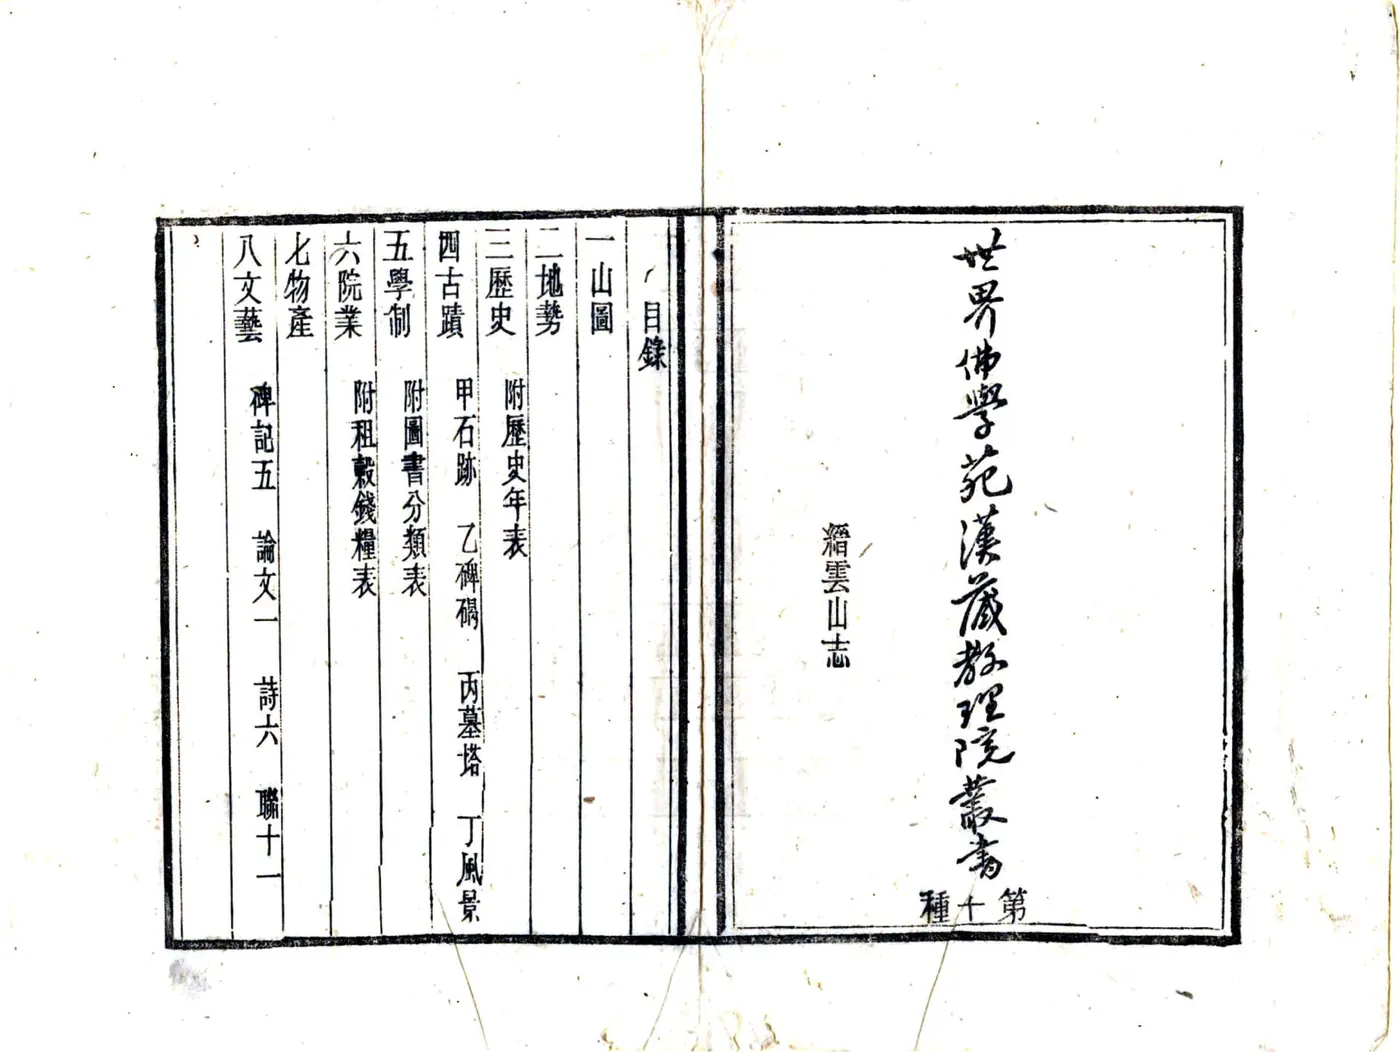 世界佛學苑漢藏教理院叢書
第十種
縉雲山志
目錄
一山圖
二地勢
三歷史 附歷史年表
四古蹟 甲石跡 乙碑碣 丙墓塔 丁風景
五學制 附圖書分類表
六院業 附租穀錢糧表
七物產
八文藝 碑記五 論文一 詩六 聯十一